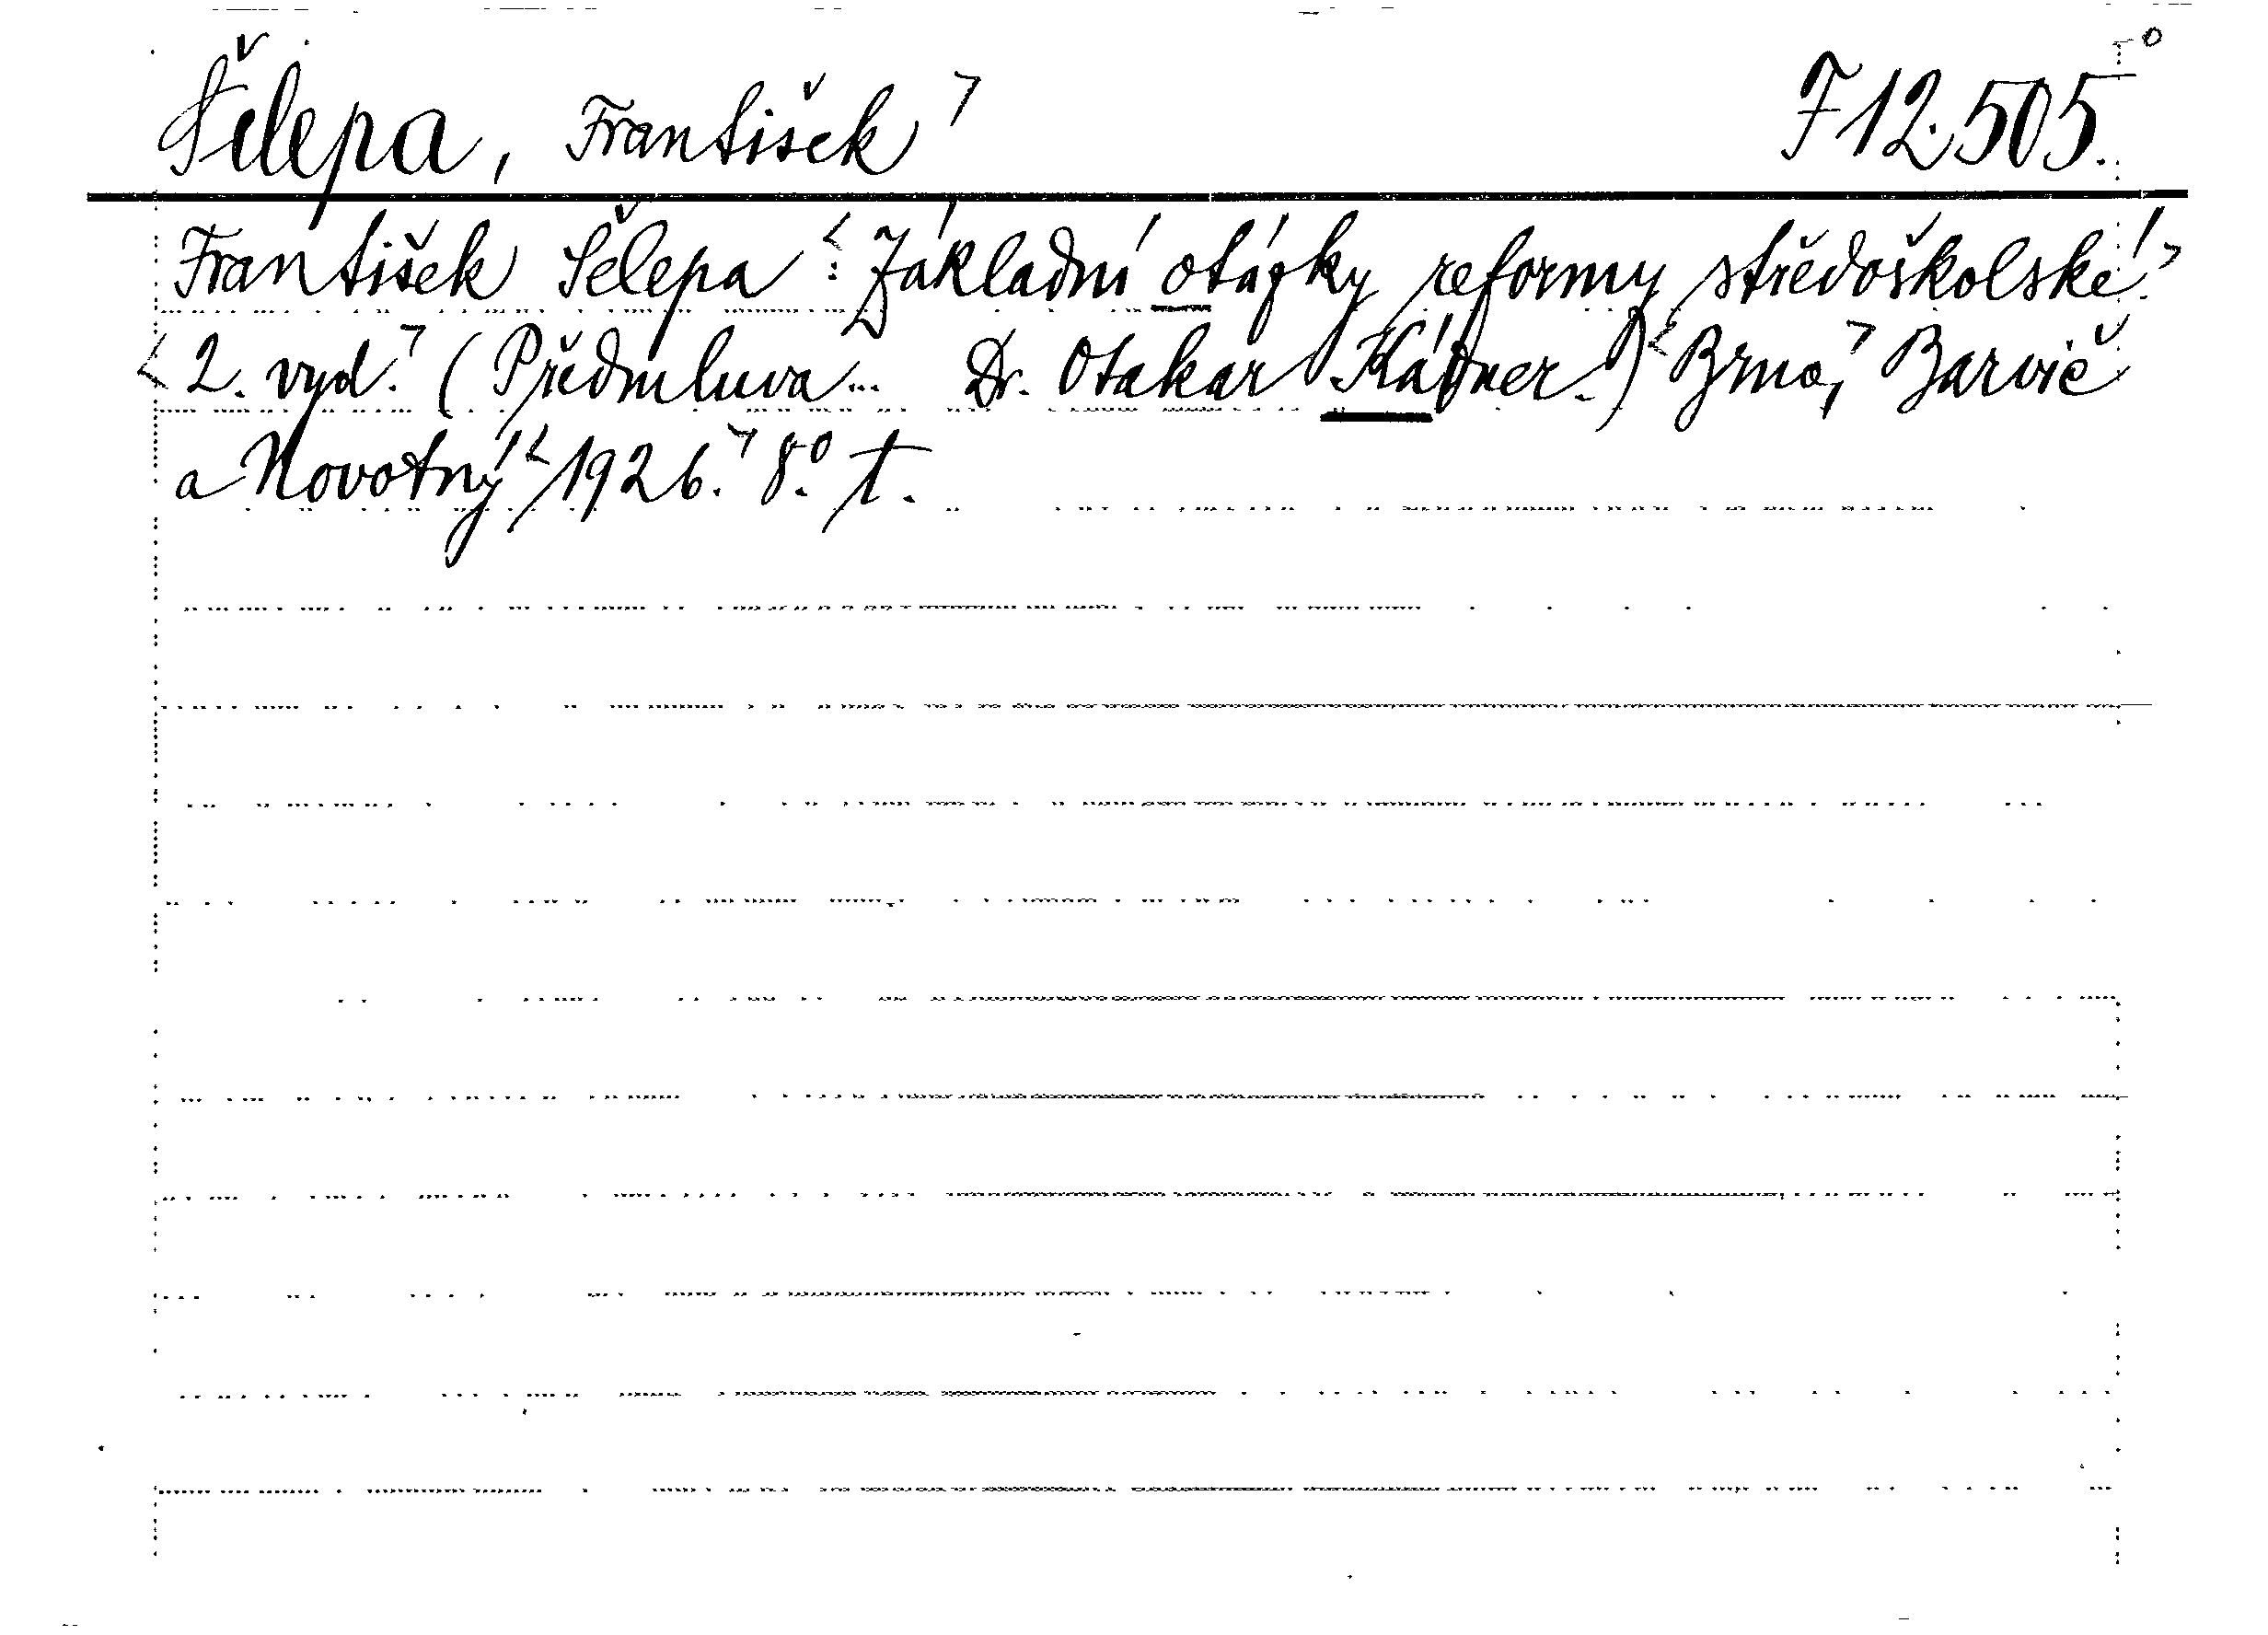 Šelepa, František F 12.505.
František Šelepa: Základní otázky reformy středoškolské.
2. vyd. (Předmluva... Dr. Otakar Kádner.) Brno, Barvič
a Novotný 1926. 8°. T.